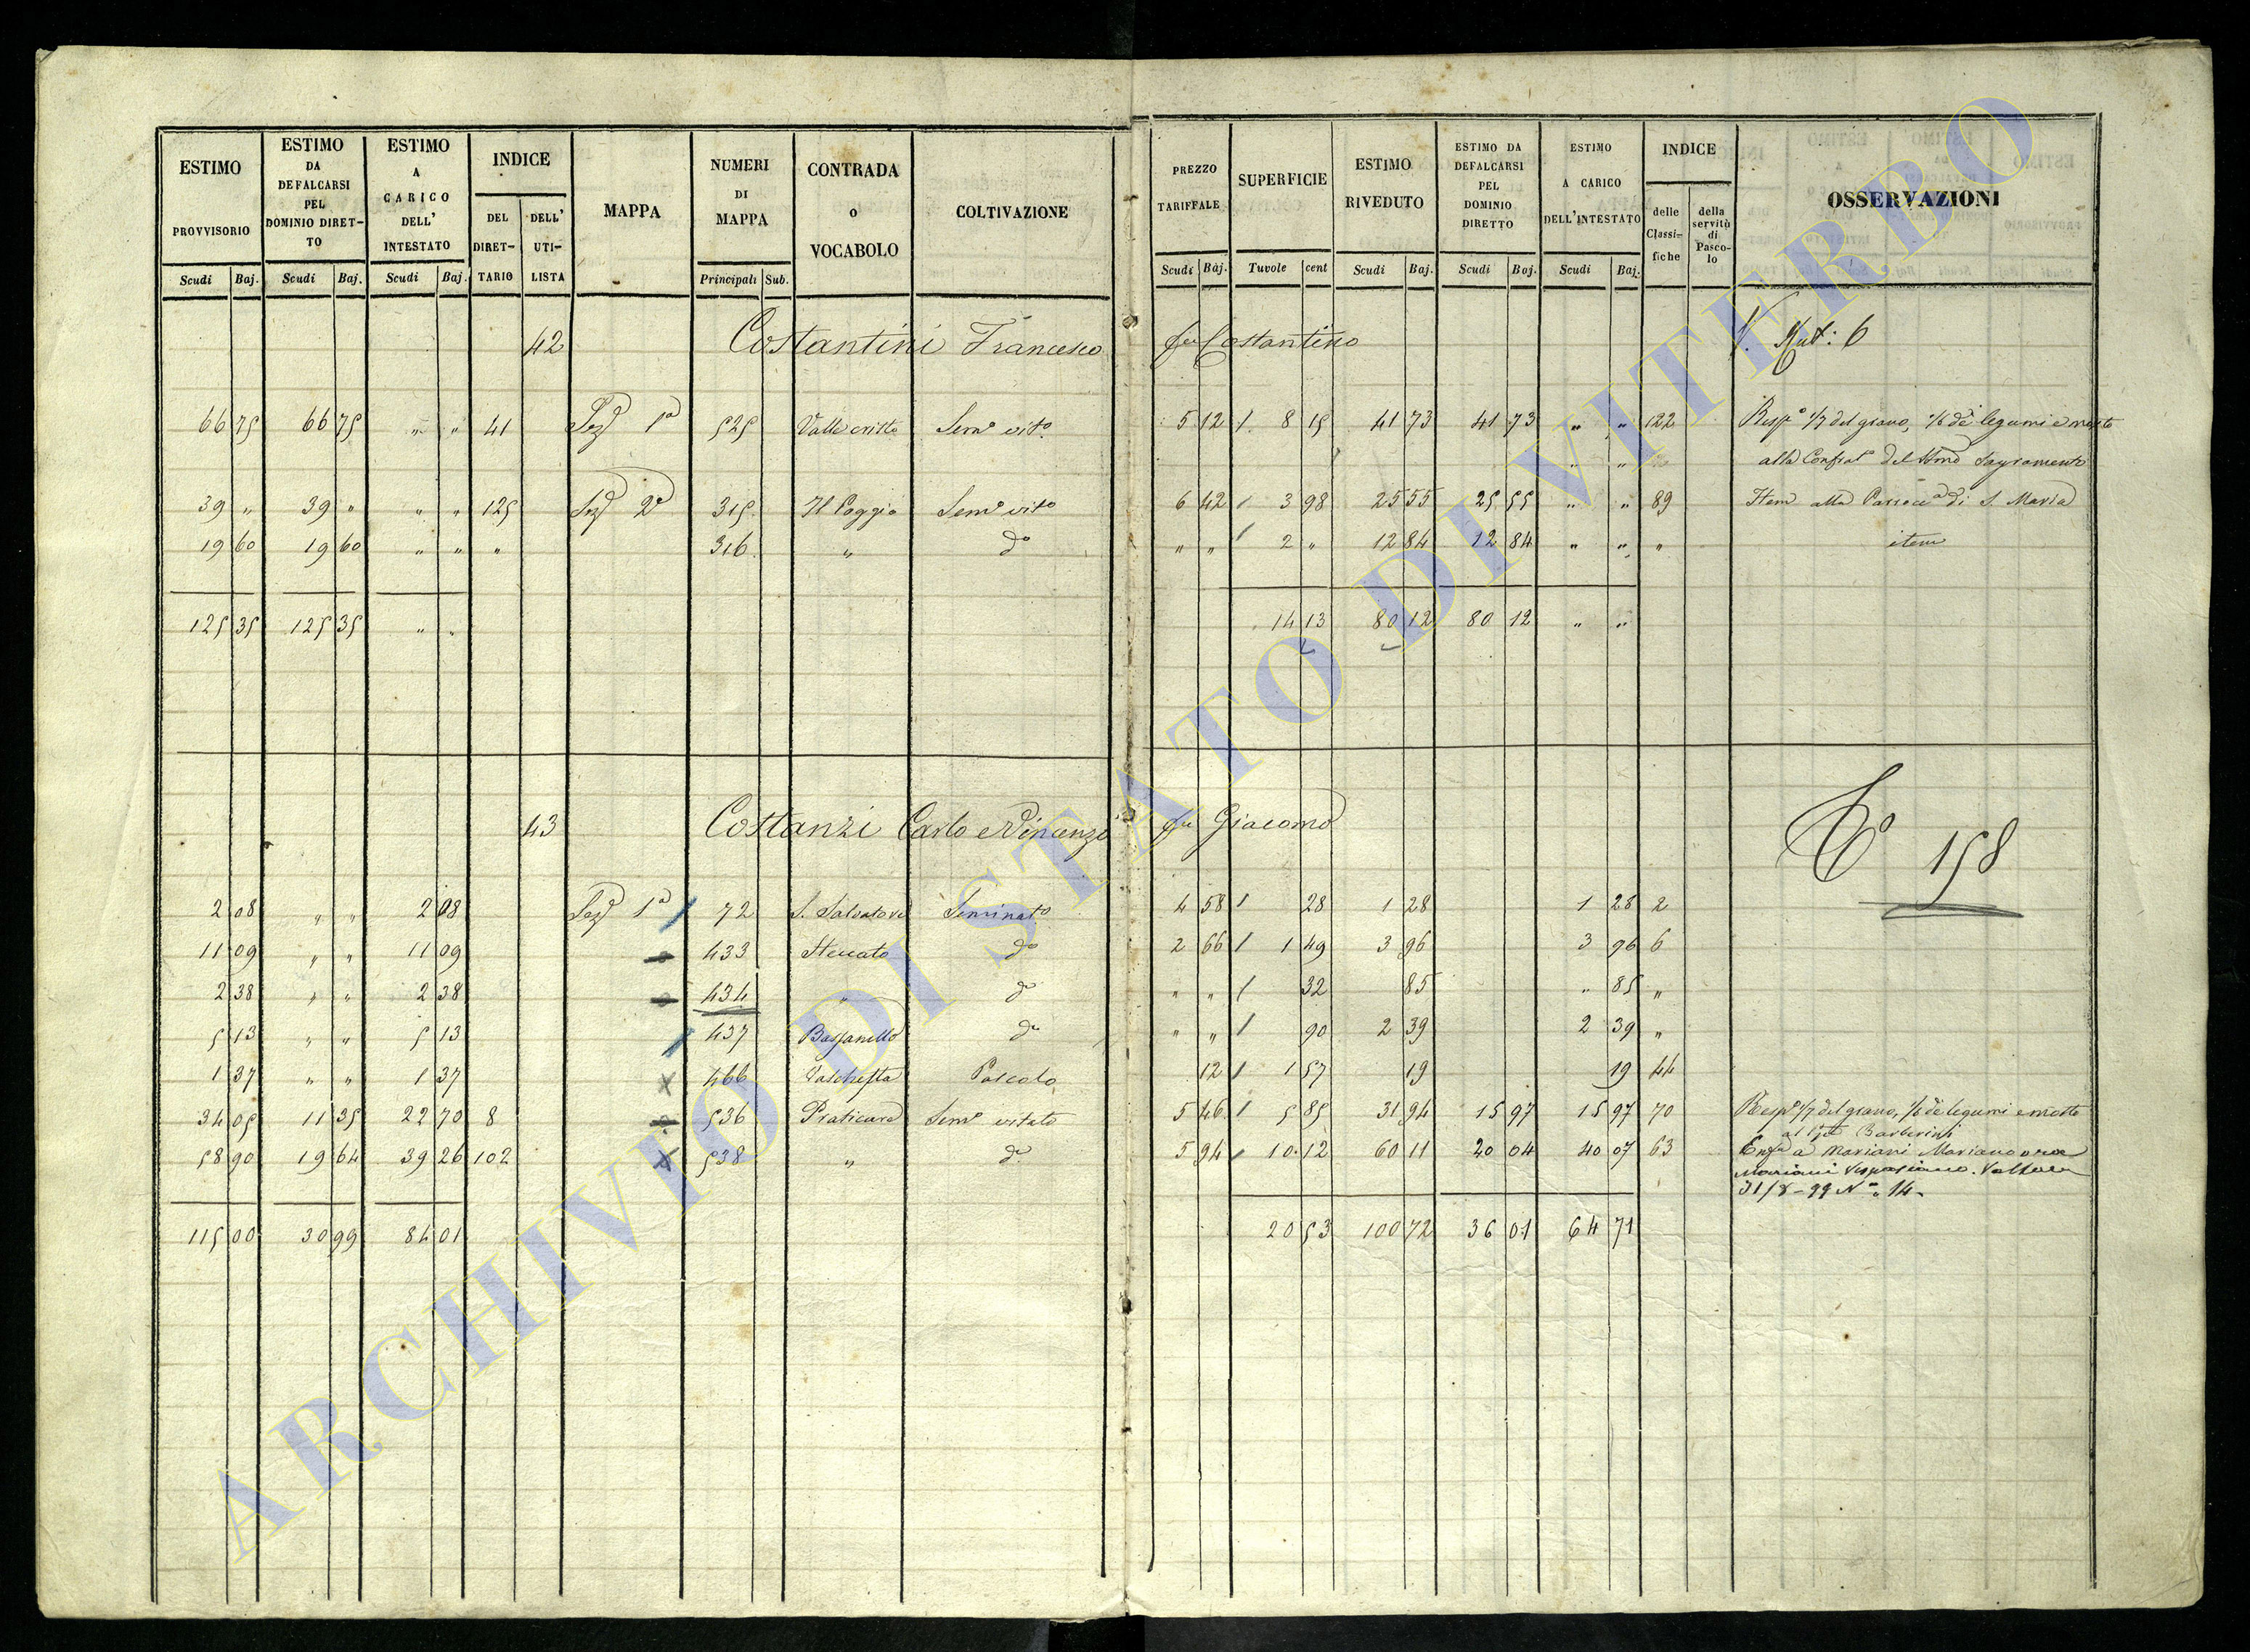 ESTIMO PROVVISORIO Scudi Baj.
ESTIMO DA DEFALCARSI PEL DOMINIO DIRET-TO Scudi Baj.
ESTIMO A CARICO DELL' INTESTATO Scudi Baj.
INDICE DEL DIRET-TARIO DELL' UTI-LISTA
MAPPA
NUMERI DI MAPPA Principali Sub.
CONTRADA O VOCABOLO
COLTIVAZIONE
PREZZO TARIFFALE Scudi Baj.
SUPERFICIE Tavole cent
ESTIMO RIVEDUTO Scudi Baj.
ESTIMO DA DEFALCARSI PEL DOMINIO DIRETTO Scudi Baj.
ESTIMO A CARICO DELL'INTESTATO Scudi Baj.
INDICE delle Classi-fiche della servitù di Pasco-lo
OSSERVAZIONI
42 Costantini Francesco fu Costantino
66 75 66 75 " " 41 Sez 1a 525 Valle cristo Semo vito 5 12 / 8 15 41 73 41 73 " " 122 Respe 1/7 del grano, 1/6 dei legumi e mosto
alla Confrat del SSmo Sagramento
39 " 39 " " " 125 Sez 2a 315 Il Poggio Semo vito 6 42 / 3 98 25 55 25 55 " " 89 Item alla Parroca di S. Maria
19 60 19 60 " " " 316 " do " " / 2 " 12 84 12 84 " " " item
125 35 125 35 " " 14 13 80 12 80 12 " "
43 Costanzi Carlo e Vincenzo fu Giacomo
158
2 08 " " 2 08 Sez 1a 72 S. Salvatore Seminato 4 58 / 28 1 28 1 28 2
11 09 " " 11 09 433 Steccato do 2 66 / 1 49 3 96 3 96 6
2 38 " " 2 38 434 " do " " / 32 85 " 85 "
5 13 " " 5 13 437 Bassanello do " " / 90 2 39 2 39 "
1 37 " " 1 37 466 Pascolo 12 / 1 57 19 19 44
34 05 11 35 22 70 8 536 Praticara Semo vitato 5 46 / 5 85 31 94 15 97 15 97 70 Respe 1/7 del grano, 1/6 dei legumi e mosto
al Barberini
58 90 19 64 39 26 102 538 " do 5 94 / 10 12 60 11 20 04 40 07 63 Enfa a Mariani Mariano ora
Mariani Vespasiano.
31/8-99 No. 14.
115 00 30 99 84 01 20 53 100 72 36 01 64 71
ARCHIVIO DI STATO DI VITERBO